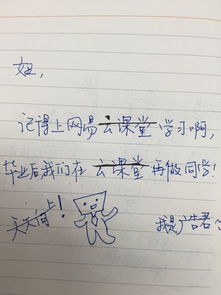 妞,
记得上网易云课堂学习啊,
毕业后我们在云课堂再做同学!
天天向上!
我是广告君: